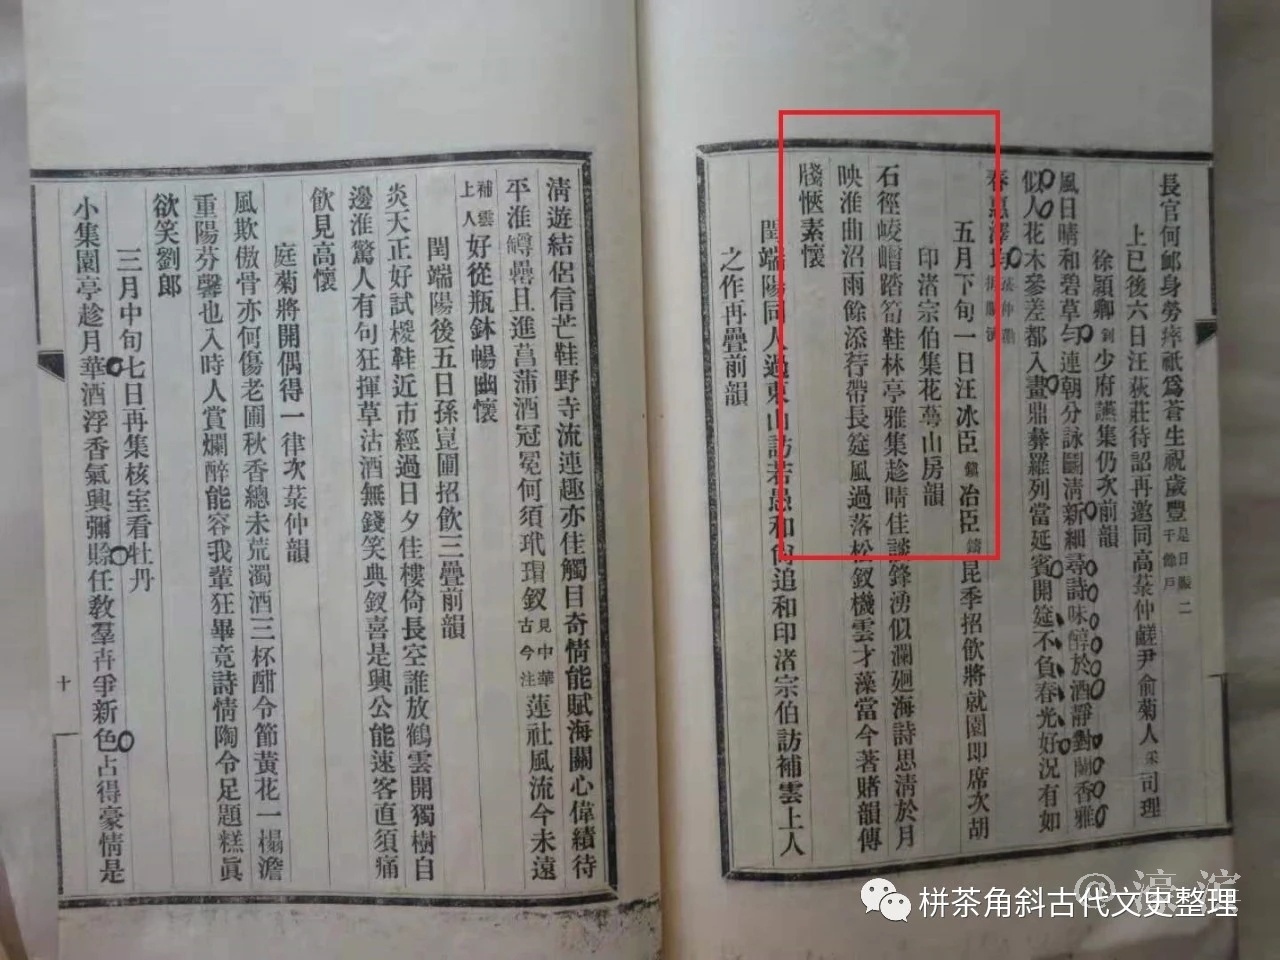 長官何邮身勞瘁祇爲蒼生祝歲豐是日賑二千餘戶
上巳後六日汪荻莊待詔再邀同高菉仲鹺尹俞菊人采司理
徐穎卿釗少府讌集仍次前韻
風日晴和碧草勻連朝分詠鬭清新細尋詩味醇於酒靜對蘭香雅
似人花木參差都入畫鼎彝羅列當延賓開筵不負春光好況有如
春惠澤均
五月下旬一日汪冰臣鏞冶臣鑄昆季招飲將就園即席次胡
印渚宗伯集花蕚山房韻
石徑崚嶒踏筍鞋林亭雅集趁晴佳談鋒湧似瀾廻海詩思清於月
映淮曲沼雨餘添荇帶長筵風過落松釵機雲才藻當今著賭韻傳
牋愜素懷
閏端陽同人過東山訪若愚和尙追和印渚宗伯訪補雲上人
之作再疊前韻
清遊結侶信芒鞋野寺流連趣亦佳觸目奇情能賦海關心偉績待
平淮罇罍且進菖蒲酒冠冕何須玳瑁釵見中華古今注蓮社風流今未遠
補雲上人好從瓶鉢暢幽懷
閏端陽後五日孫崑圃招飲三疊前韻
炎天正好試椶鞋近市經過日夕佳樓倚長空誰放鶴雲開獨樹自
邊淮驚人有句狂揮草沽酒無錢笑典釵喜是興公能速客直須痛
飲見高懷
庭菊將開偶得一律次菉仲韻
風欺傲骨亦何傷老圃秋香總未荒濁酒三杯酣令節黃花一榻澹
重陽芬馨也入時人賞爛醉能容我輩狂畢竟詩情陶令足題糕眞
欲笑劉郎
三月中旬七日再集核室看牡丹
小集園亭趁月華酒浮香氣興彌賒任教羣卉爭新色占得豪情是
十
栟茶角斜古代文史整理
@濠滨